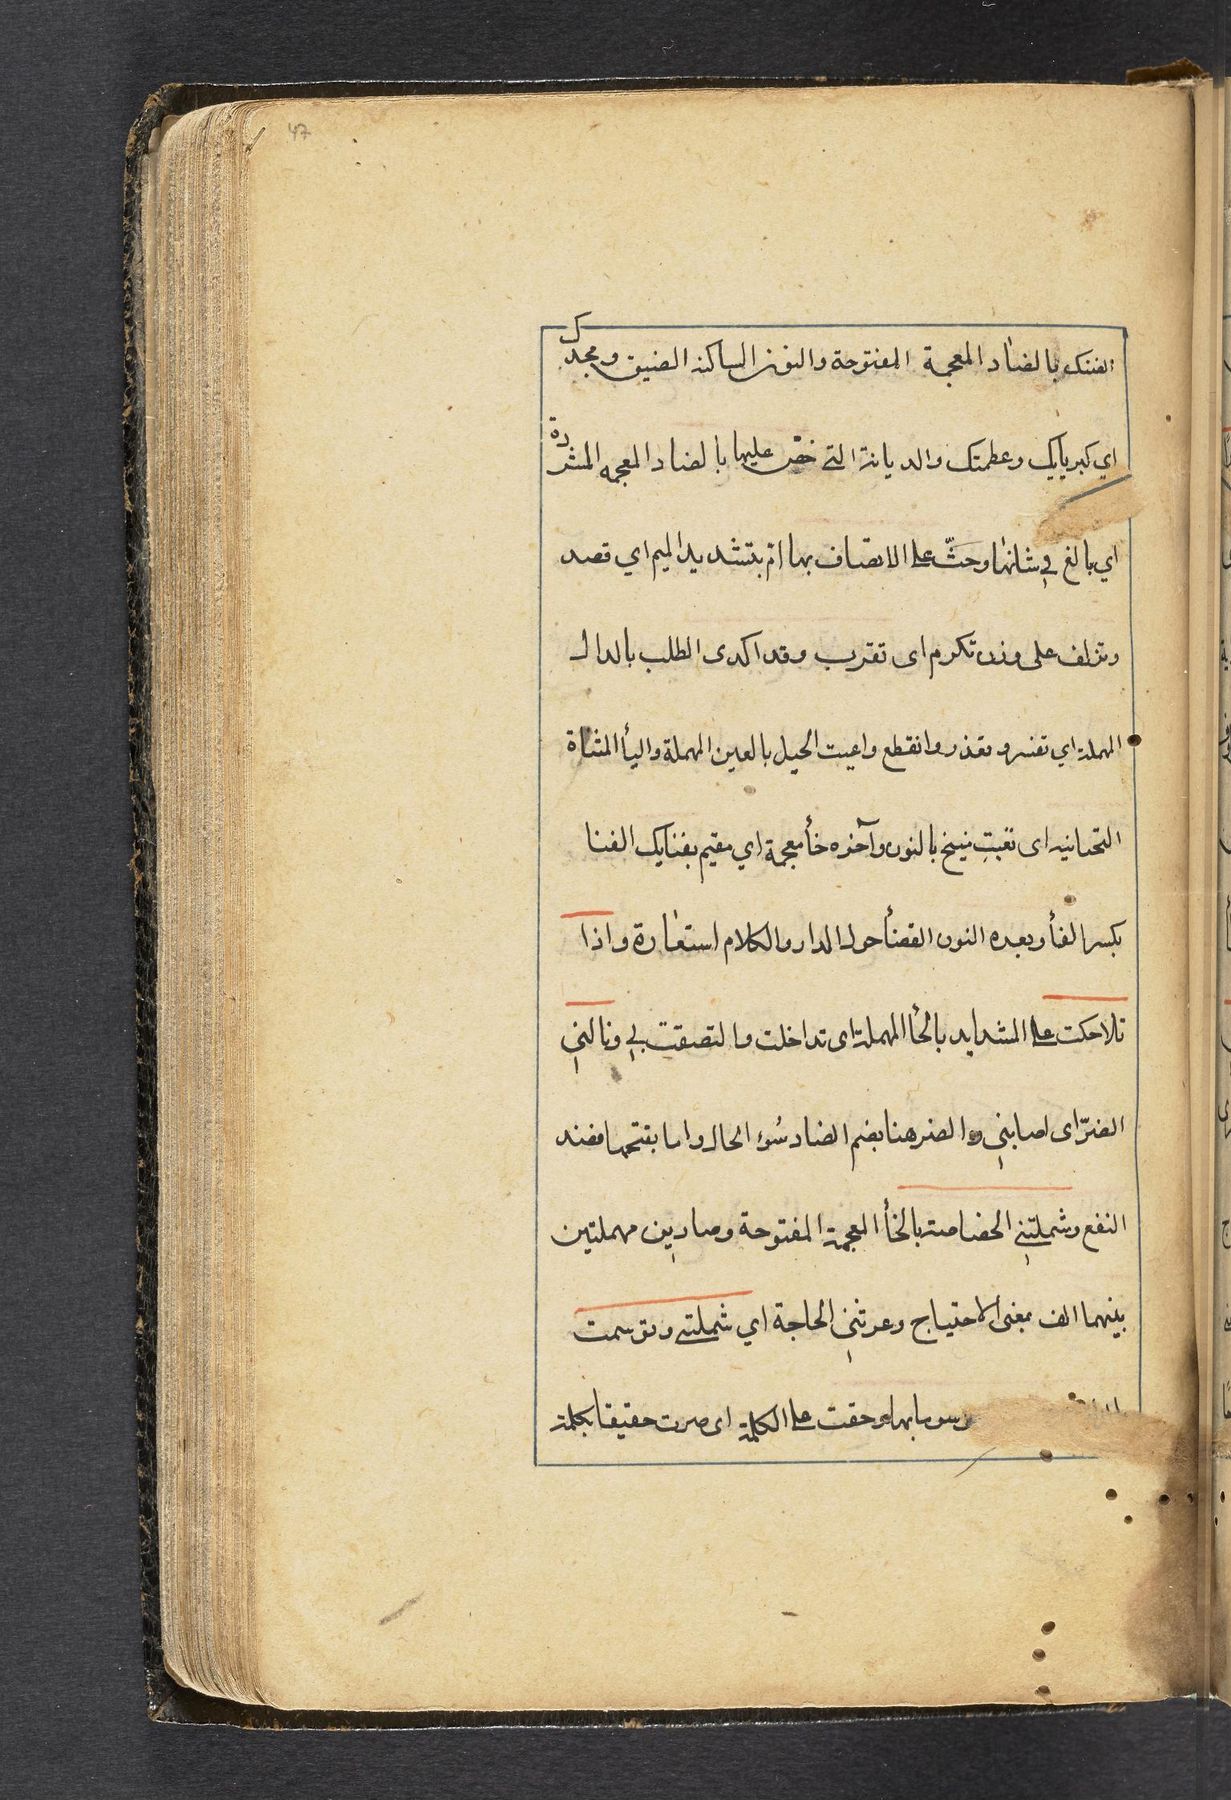 47
الضنك بالضاد المعجمة المفتوحة والنون الساكنة الضيق ومجدك
اي كبريايك وعظمتك والديانة التي حض عليها بالضاد المعجمه المشددة
اي بالغ في شانها وحثّ على الاتصاف بها امّ بتشديد الميم اي قصد
وتزلف على وزن تكرم اى تقرب وقد اكدى الطلب بالدال
المهملة اي تعسر وتعذر وانقطع واعيت الحيل بالعين المهملة واليأ المثناة
التحتانيه اى تعبت منيخ بالنون وآخره خأ معجمة اي مقيم بفنايك الفنا
بكسر الفأ وبعده النون الفضأ حول الدار والكلام استعارة واذا
تلاحكت على الشدايد بالحأ المهملة اى تداخلت والتصقت بي ونالني
الضرّ اى اصابني والضر هنا بضم الضاد سُوء الحال واما بفتحها فضد
النفع وشملتني الخصاصة بالخأ المعجمة المفتوحة وصادين مهملتين
بينهما الف بمعنى الاحتياج وعرتني الحاجة اي شملتني وتوسمت
موسوما بها وحقت على الكلمة اى صرت حقيقا بكلمة